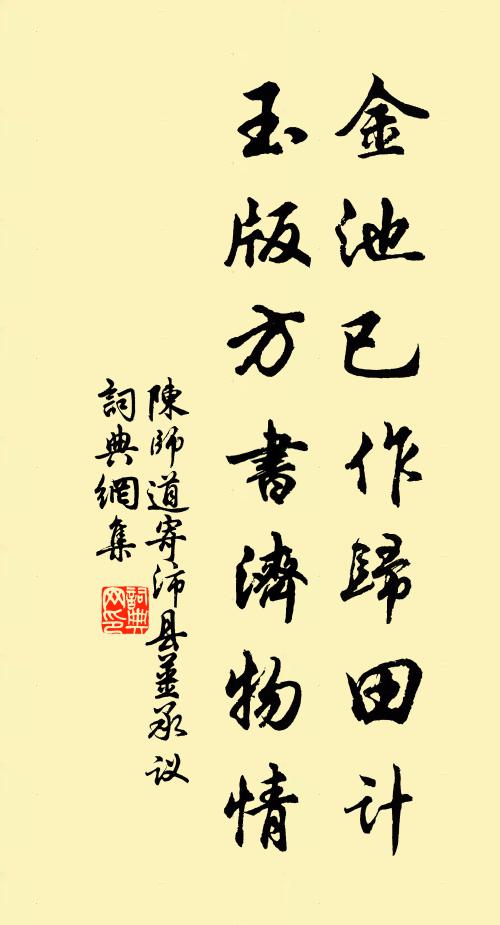 金池已作歸田計
玉版方書濟物情
陳師道寄沛县姜承议
詞典網集
詞典
网印